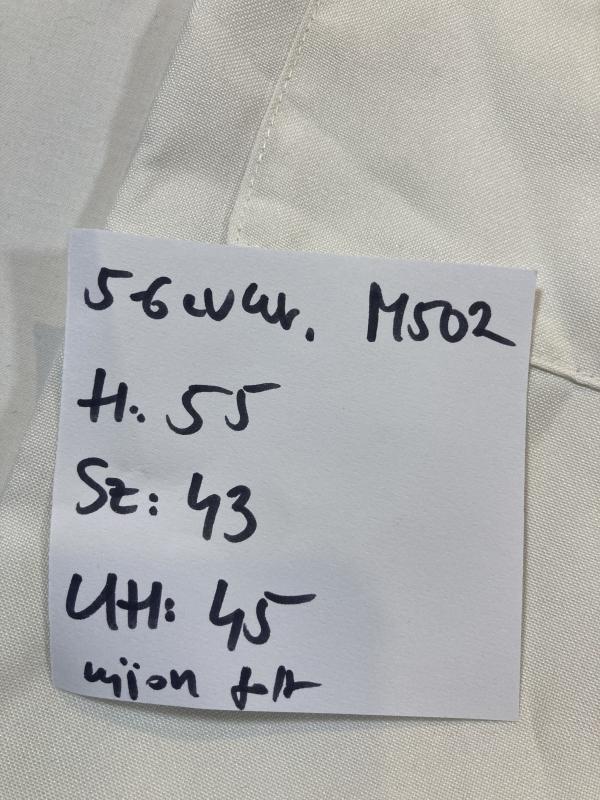 5-6 évar. M502
H: 55
Sz: 43
UH: 45
ujjon folt